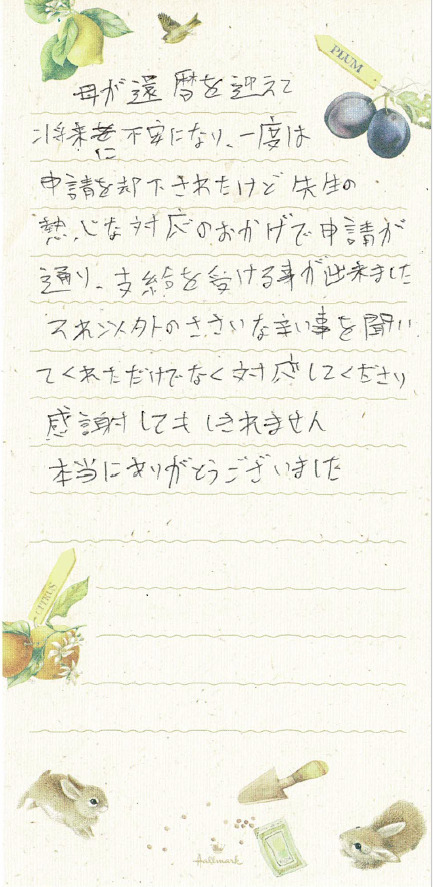 PLUM
母が還暦を迎えて
将来に不安になり、一度は
申請を却下されたけど先生の
熱心な対応のおかげで申請が
通り、支給を受ける事が出来ました
それ以外のささいな辛い事を聞い
てくれただけでなく対応してくださり
感謝してもしきれません
本当にありがとうございました
CITRUS
Hallmark